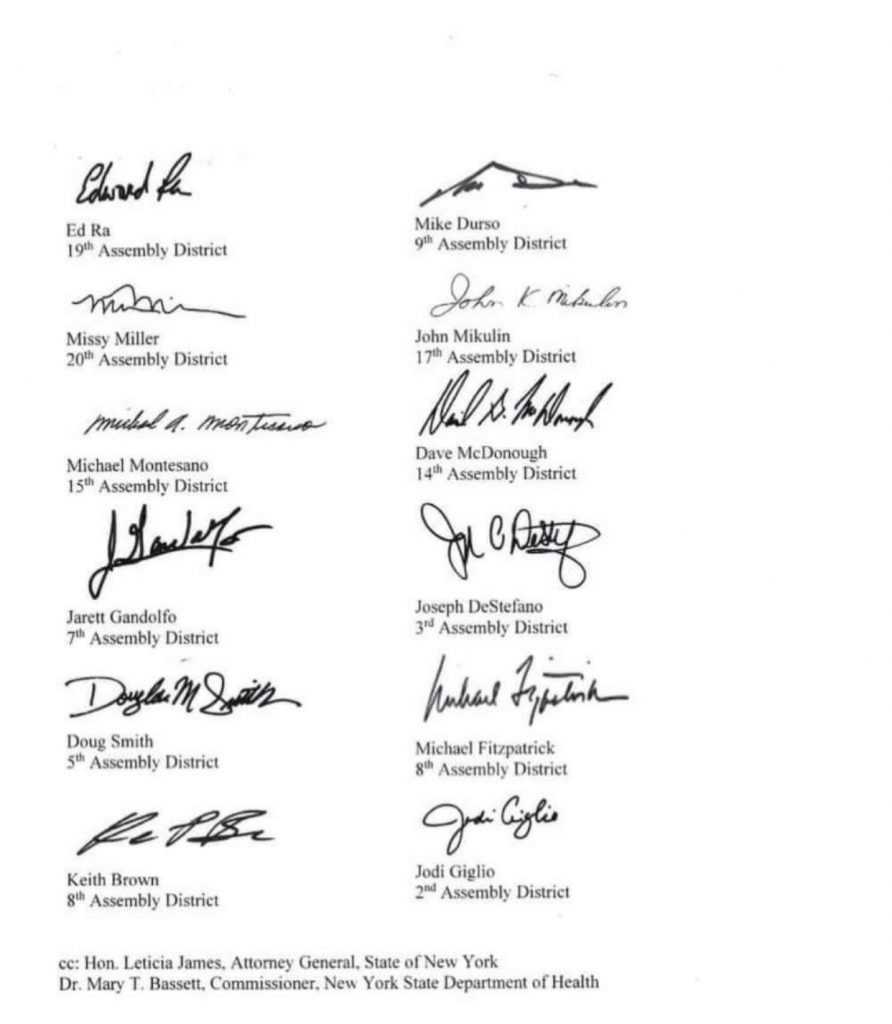 Edward Ra
Ed Ra
19th Assembly District
Mike Durso
9th Assembly District
Missy Miller
20th Assembly District
John K. Mikulin
John Mikulin
17th Assembly District
Michael A. Montesano
Michael Montesano
15th Assembly District
Dave McDonough
14th Assembly District
J Gandolfo
Jarett Gandolfo
7th Assembly District
Joseph DeStefano
3rd Assembly District
Douglas M Smith
Doug Smith
5th Assembly District
Michael Fitzpatrick
Michael Fitzpatrick
8th Assembly District
Keith Brown
8th Assembly District
Jodi Giglio
Jodi Giglio
2nd Assembly District
cc: Hon. Leticia James, Attorney General, State of New York
Dr. Mary T. Bassett, Commissioner, New York State Department of Health